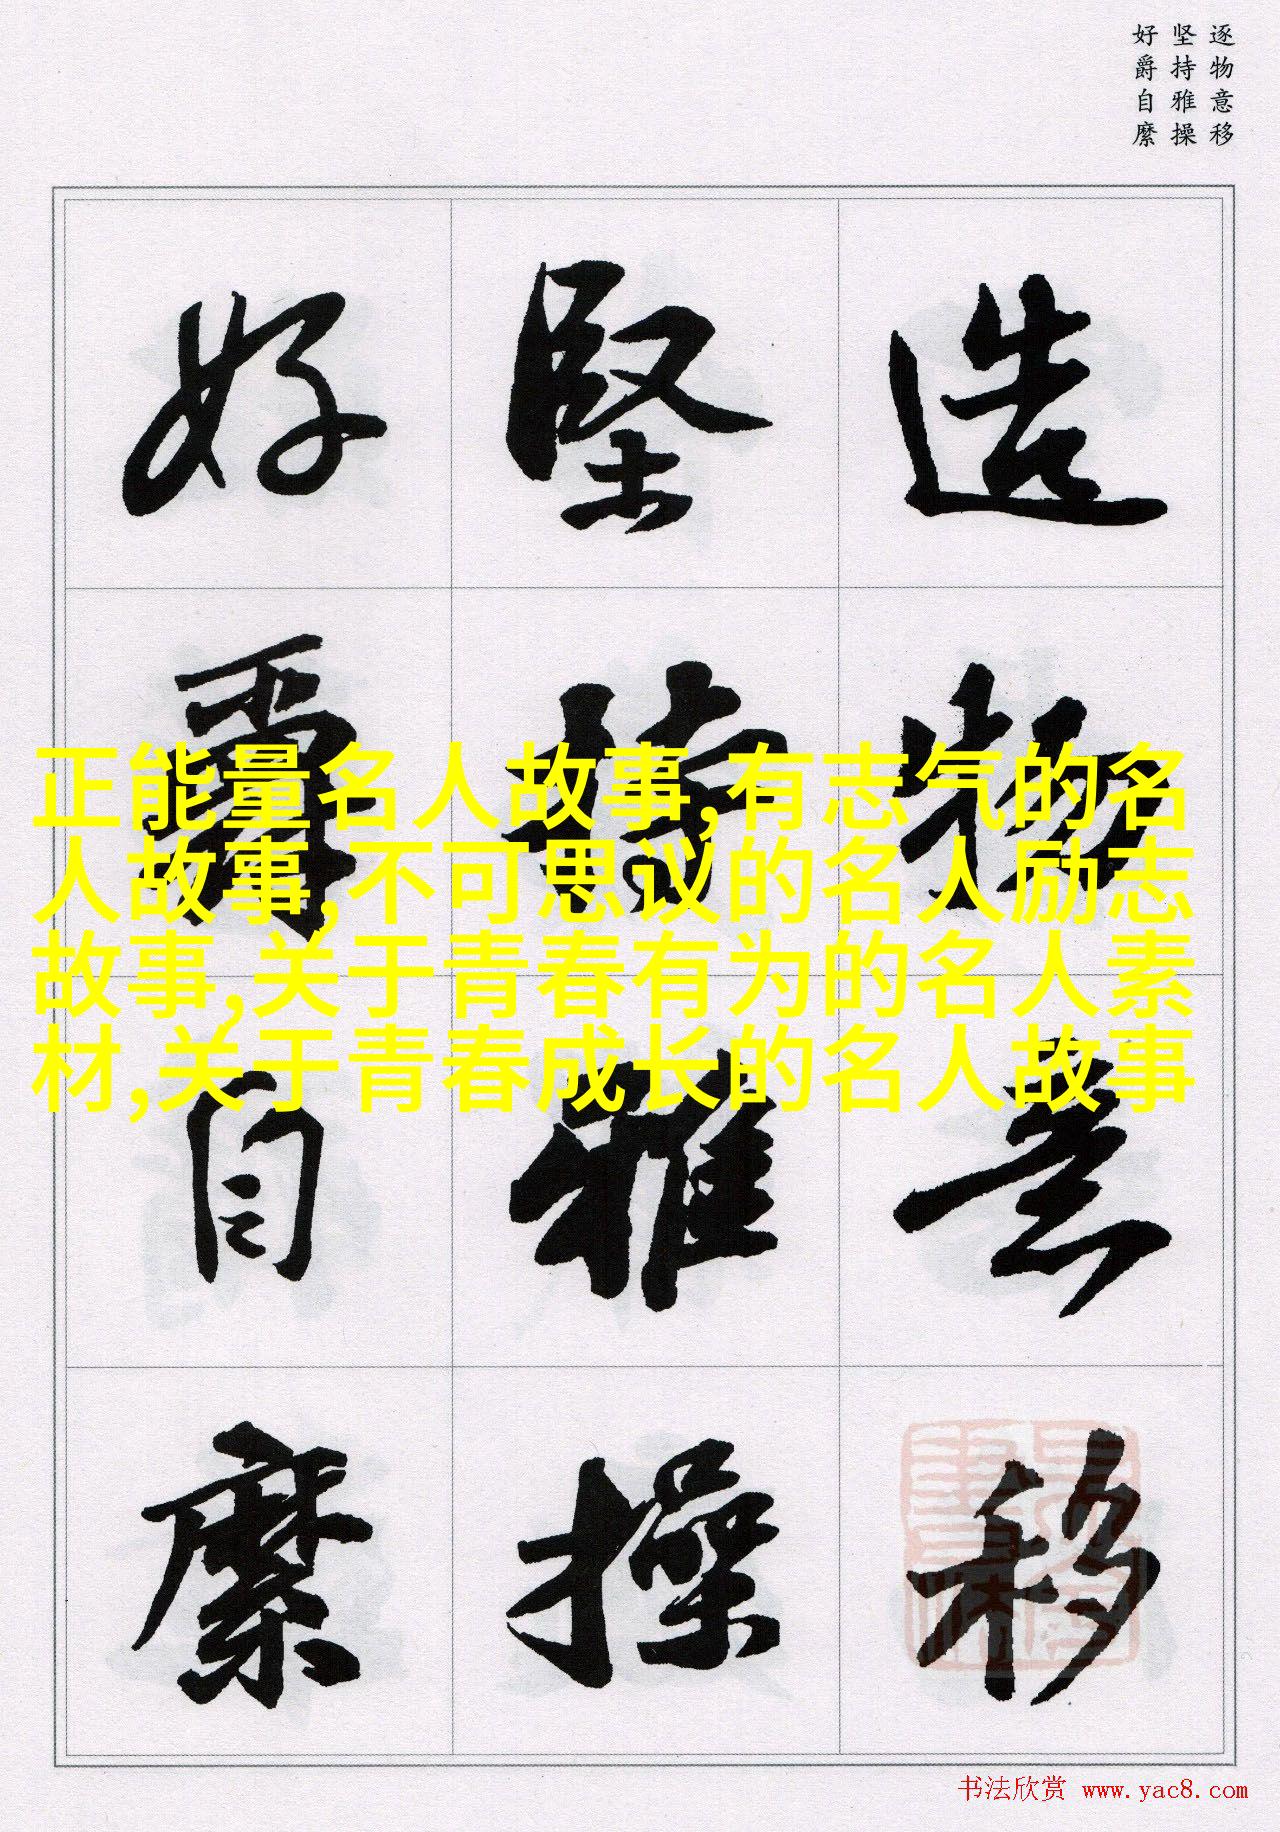 逐物意移
坚持雅操
好爵自縻
造物意移
堅持雅操
好爵自縻
正能量名人故事,有志气的名
人故事,不可思议的名人励志
故事,关于青春有为的名人素
材,关于青春成长的名人故事
书法欣赏 www.yac8.com